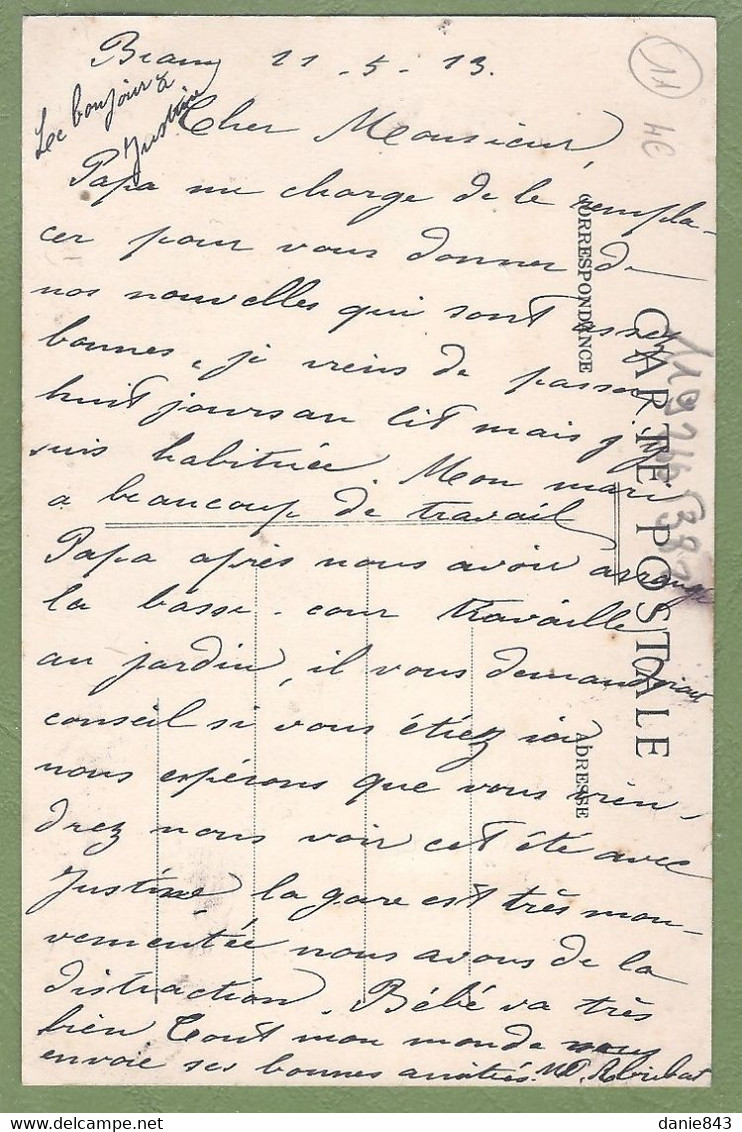 11 - 5 - 13.
Le bonjour à
Justine
Cher Monsieur,
Papa me charge de le rempla-
cer pour vous donner de
nos nouvelles qui sont assez
bonnes, je viens de passer
huit jours au lit mais j'y
suis habituée. Mon mari
a beaucoup de travail
Papa après nous avoir arrangé
la basse-cour travaille
au jardin, il vous demanderait
conseil si vous étiez ici
nous espérons que vous vien-
drez nous voir cet été avec
Justine, la gare est très mou-
vementée nous avons de la
distraction. Bébé va très
bien Tout mon monde vous
envoie ses bonnes amitiés. M.
CORRESPONDANCE
CARTE POSTALE
ADRESSE
11
4€
danie843